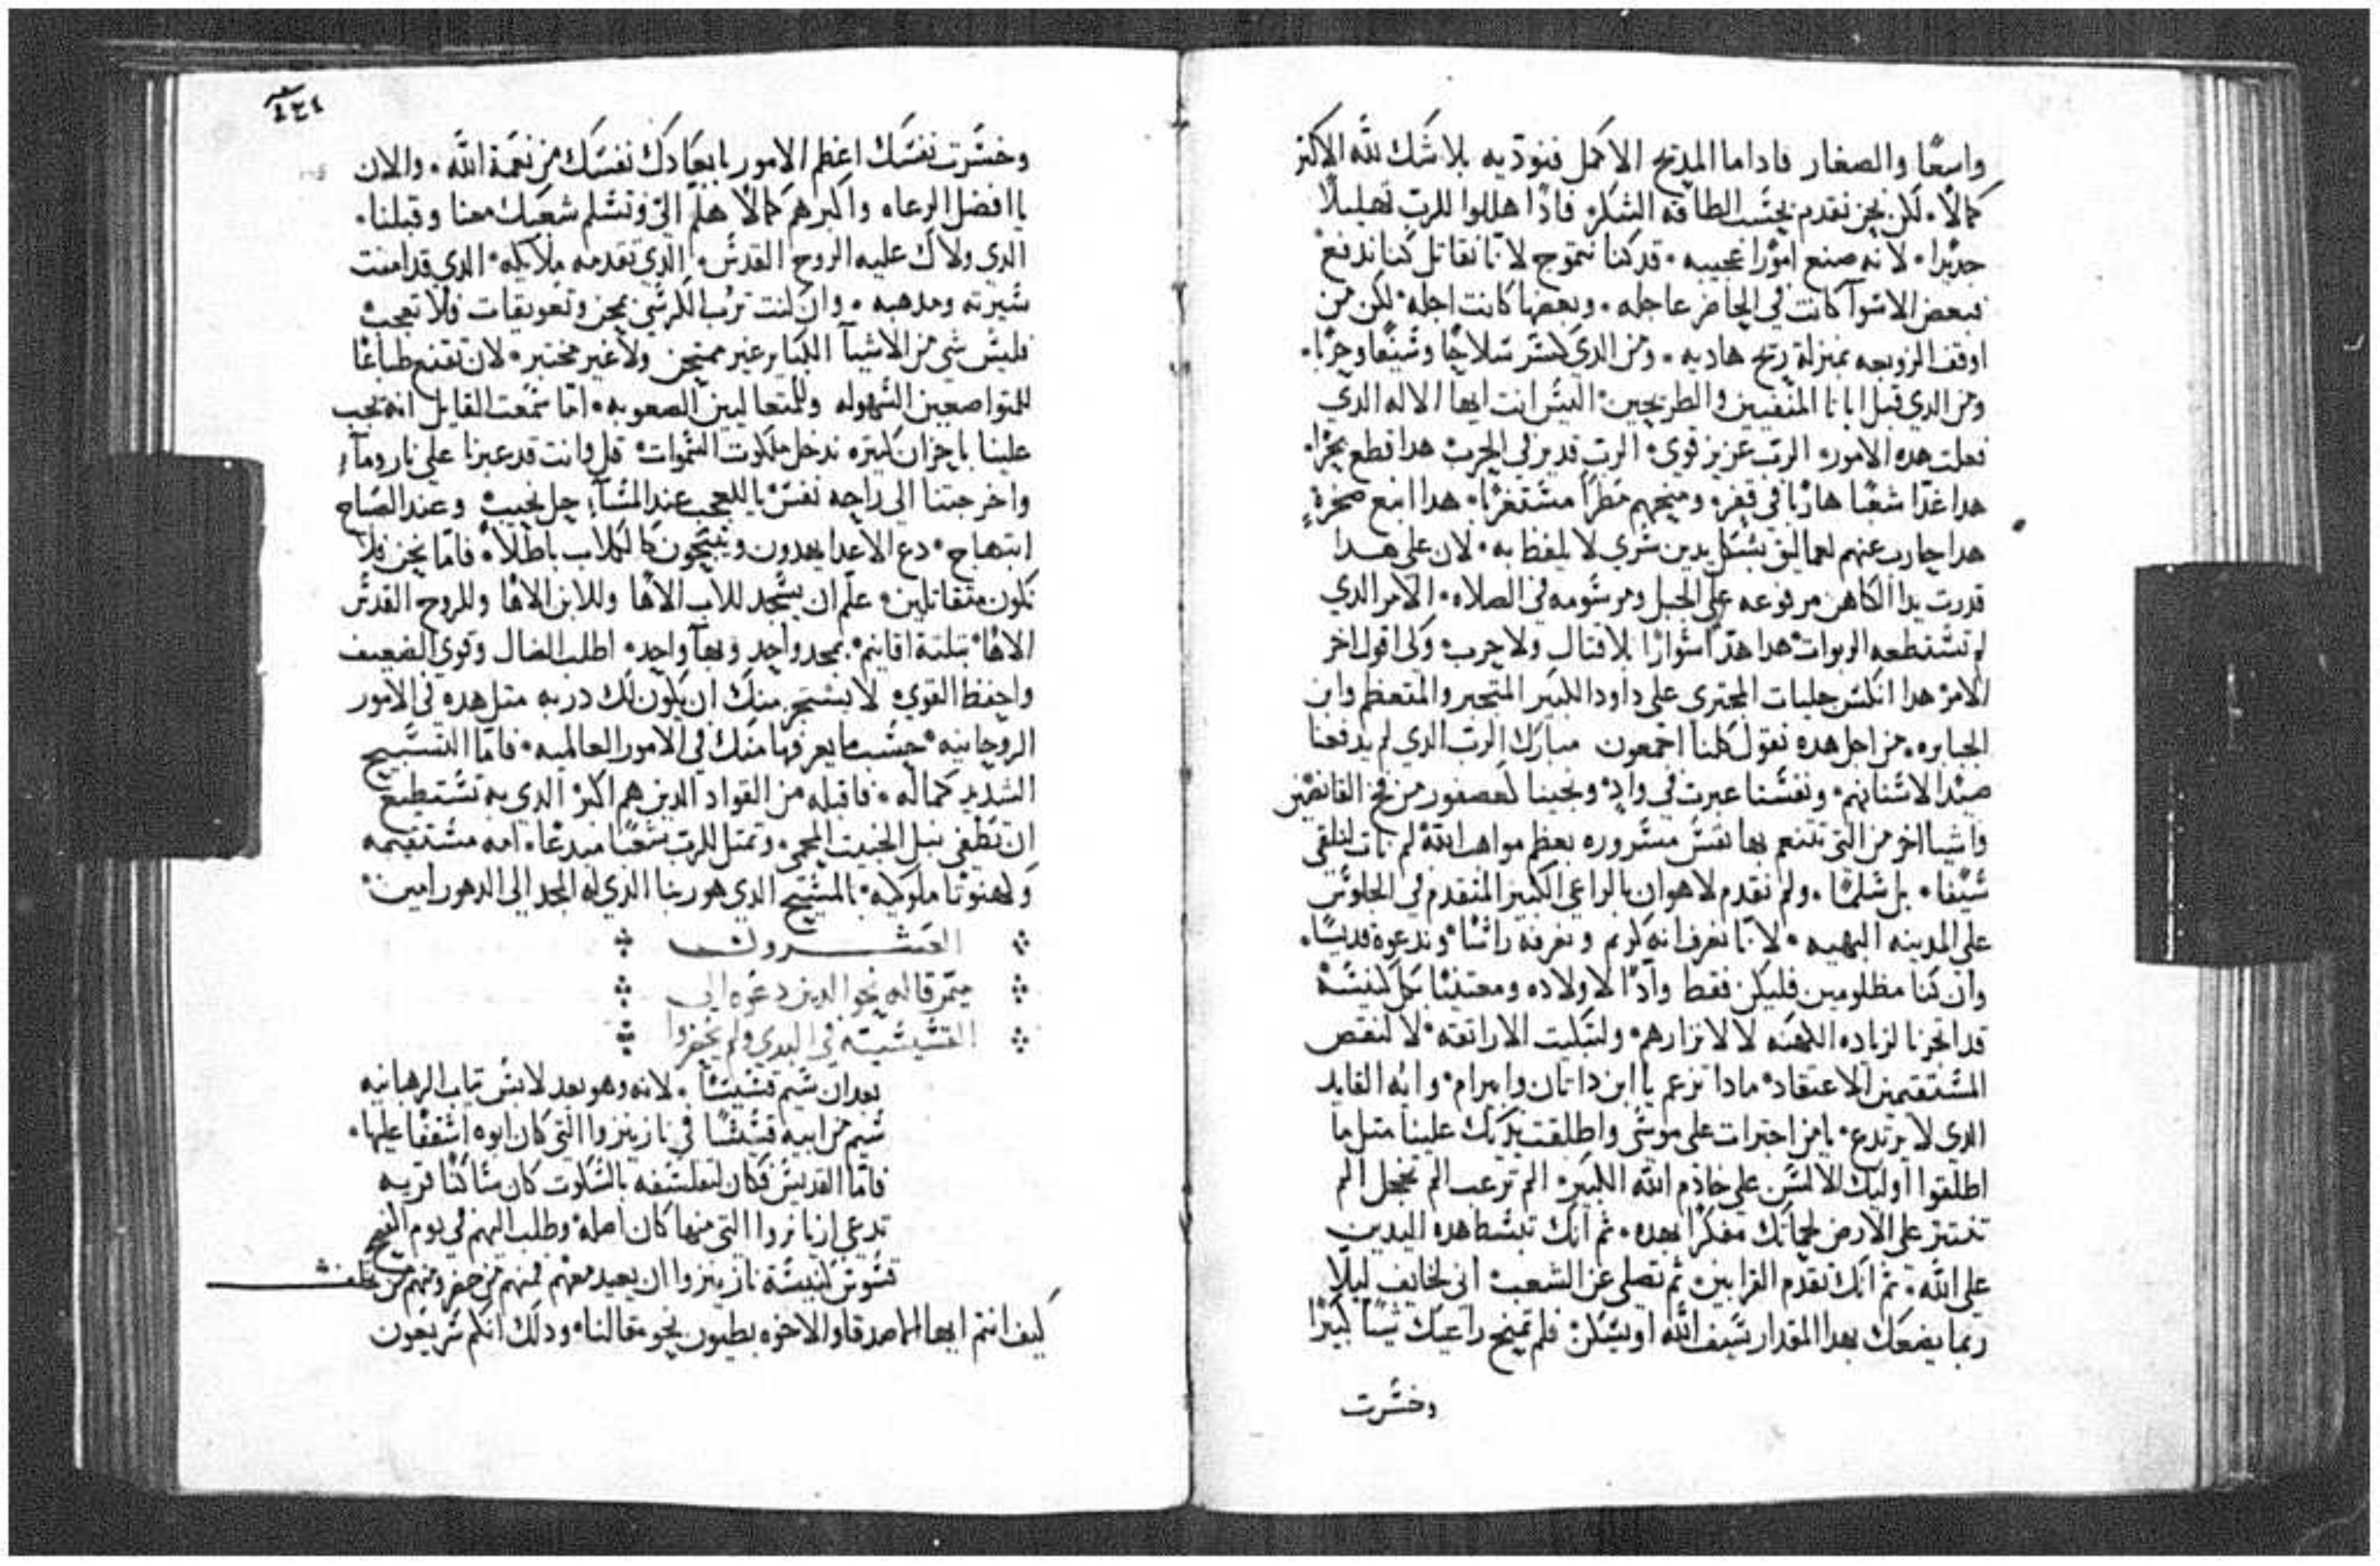 واسعًا والصغار فاداما المديح الاكمل فنودّيه بلا شك لله الاكثر
كمالًا. لكن نحن نقدم بحسب الطاقه الشكر فادًا هللوا للرب تهليلًا
جديدا. لانه صنع امورًا عجيبه. قد كنا نتموج لانّا نقاتل كنا ندفع
فبعض الاسوآ كانت في الحاضر عاجله. وبعضها كانت اجله لكن من
اوقف الزوبعه بمنزلة ريح هاديه. ومن الدي كسر سلاحًا وسيفًا وحربًا.
ومن الدي قبل ايانا المنفيين والطريحين اليس انت ايها الاله الدي
فعلت هده الامور الرب عزيز قوي الرب قدير في الحرب هدا قطع بحرًا
هدا غدّا شعبًا هاربًا في قفر ومنحهم مطرًا مستغربًا هدا انبع صخرةٍ
هدا حارب عنهم لعماليق بشكل يدين سري لا يلفظ به. لان على هدا
قدرت يدا الكاهن مرفوعه على الجبل ومرسومه في الصلاه الامر الدي
لم تستطعه الربوات هدا هدّ اسوارًا بلا قتال ولا حرب ولكي اقول اخر
الامر هدا انكس جليات المجتري على داود الكبير المتجبر والمتعظم وابن
الجبابره. من اجل هده نقول كلنا اجمعون مبارك الرب الدي لم يدفعنا
صيدًا لاسنانهم. ونفسنا عبرت في وادٍ ونجينا كعصفور من فخ القانصين
واشيا اخر من التي تتنعم بها نفس مسروره بعظم مواهب الله لم نات لنلقي
سيفا. بل سلمًا. ولم نقدم لاهوان بالراعي الكبير المتقدم في الجلوس
على المدينه البهيه. لانّا نعرف انه كريم ونعرفه راسًا وندعوه قديسًا.
وان كنا مظلومين فليكن فقط وادًا لاولاده ومعتنيًا بكل كنيسة
قد اتحرنا لزياده الكهنه لا لازرارهم ولتبكيت الاراتقه لا لنقص
المستقيمين الاعتقاد ماذا تزعم يا ابن داتان وابيرام وايه القايد
الدي لا يرتدع يا من اجترات على موسى واطلقت يديك علينا متل ما
اطلقوا اوليك الالسن على خادم الله الكبير الم ترعب الم تخجل الم
تنتتر على الارض لحمانك مفكرًا بهده. ثم انك تبسط هده اليدين
على الله. ثم انك تقدم القرابين ثم تصلي عن الشعب اني لخايف ليلًا
ربما يضعك بهدا المقدار سيف الله او يسكن فلم تمنح راعيك شيًا كبيرًا
وخسرت
٤٣٤
وخسرت نفسك اعظم الامور بابعادك نفسك من نعمة الله. والان
يا افضل الرعاه واكبرهم كمالًا هلم اليّ وتسلم شعبك معنا وقبلنا.
الدي ولاك عليه الروح القدس الدي تقدمه ملايكه الدي قد امنت
سيرته ومدهبه. وان كنت ترتب الكرسي بمحن وتعويقات فلا تعجب
فليس شي من الاشيآ الكبار غير ممتحن ولا غير مختبر لان تتبع طباعًا
للمتواضعين السهوله وللمتعاليين الصعوبه. اما سمعت القايل انه يجب
علينا باحزان كثيره ندخل ملكوت السموات قل وانت قد عبرنا على نار ومآءٍ
واخرجتنا الى راحه نفس يا للعجب عند المسآء حل نحيب وعند الصباح
ابتهاج دع الاعدا يهدون وينبحون كالكلاب باطلًا فامّا نحن فلا
نكون متقاتلين علّم ان يسجد للاب الاهًا وللابن الاهًا وللروح القدس
الاهًا بتلتة اقانيم بمجد واحد وبهآ واحد اطلب الضال وقوي الضعيف
واحفظ القوي لا يستجر منك ان يكون لك دربه متل هده في الامور
الروحانيه حسب ما يعرفها منك في الامور العالميه. فامّا التسبيح
الشديد كماله فاقبله من القواد الدين هم اكبر الدي به تستطيع
ان تطفي نبل الخبيت المحمي وتمتل للرب شعبًا مبدعًا. امه مستقيمه
وكهنوتًا ملوكيه بالمسيح الدي هو ربنا الدي له المجد الى الدهور امين
العشرون
ميمر قاله نحو الدين دعوه الى
القسيسيه في البدي ولم يحضروا
بعد ان سيم قسيسًا. لانه وهو بعد لابس تياب الرهبانيه
سيم من ابيه قسيسًا في نازينزوا التي كان ابوه اسقفًا عليها.
فامّا القديس فكان لتفلسفه بالسكوت كان ساكنًا قريه
تدعى ازيانزوا التي منها كان اصله وطلب اليهم في يوم الفصح
قسوس كنيسة نازينزوا ان يعيد معهم فمنهم من حضر ومنهم من تخلف
كيف انتم ايها الاصدقاء والاخوه بطيون نحو مقالنا ودلك انكم سريعون